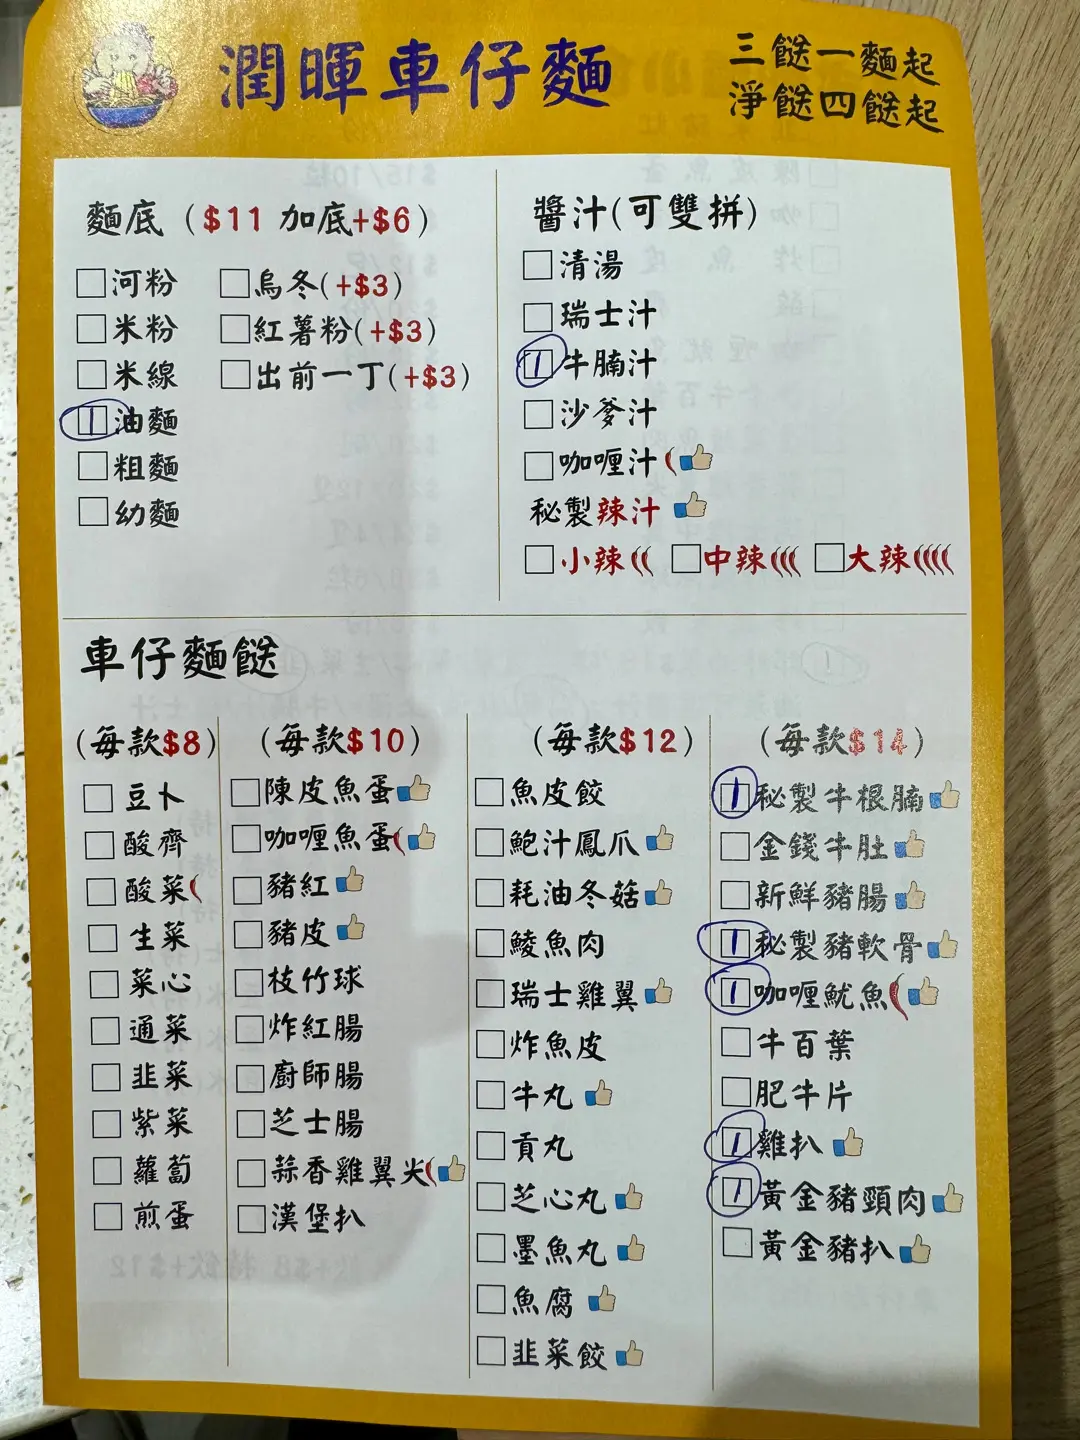 潤暉車仔麵
三餸一麵起
淨餸四餸起
麵底（$11 加底+$6）
河粉
烏冬(+$3)
米粉
紅薯粉(+$3)
米線
出前一丁(+$3)
1 油麵
粗麵
幼麵
醬汁(可雙拼)
清湯
瑞士汁
1 牛腩汁
沙爹汁
咖喱汁
秘製辣汁
小辣 中辣 大辣
車仔麵餸
(每款$8)
豆卜
酸齊
酸菜
生菜
菜心
通菜
韭菜
紫菜
蘿蔔
煎蛋
(每款$10)
陳皮魚蛋
咖喱魚蛋
豬紅
豬皮
枝竹球
炸紅腸
廚師腸
芝士腸
蒜香雞翼尖
漢堡扒
(每款$12)
魚皮餃
鮑汁鳳爪
耗油冬菇
鯪魚肉
瑞士雞翼
炸魚皮
牛丸
貢丸
芝心丸
墨魚丸
魚腐
韭菜餃
(每款$14)
1 秘製牛根腩
金錢牛肚
新鮮豬腸
1 秘製豬軟骨
1 咖喱魷魚
牛百葉
肥牛片
1 雞扒
1 黃金豬頸肉
黃金豬扒